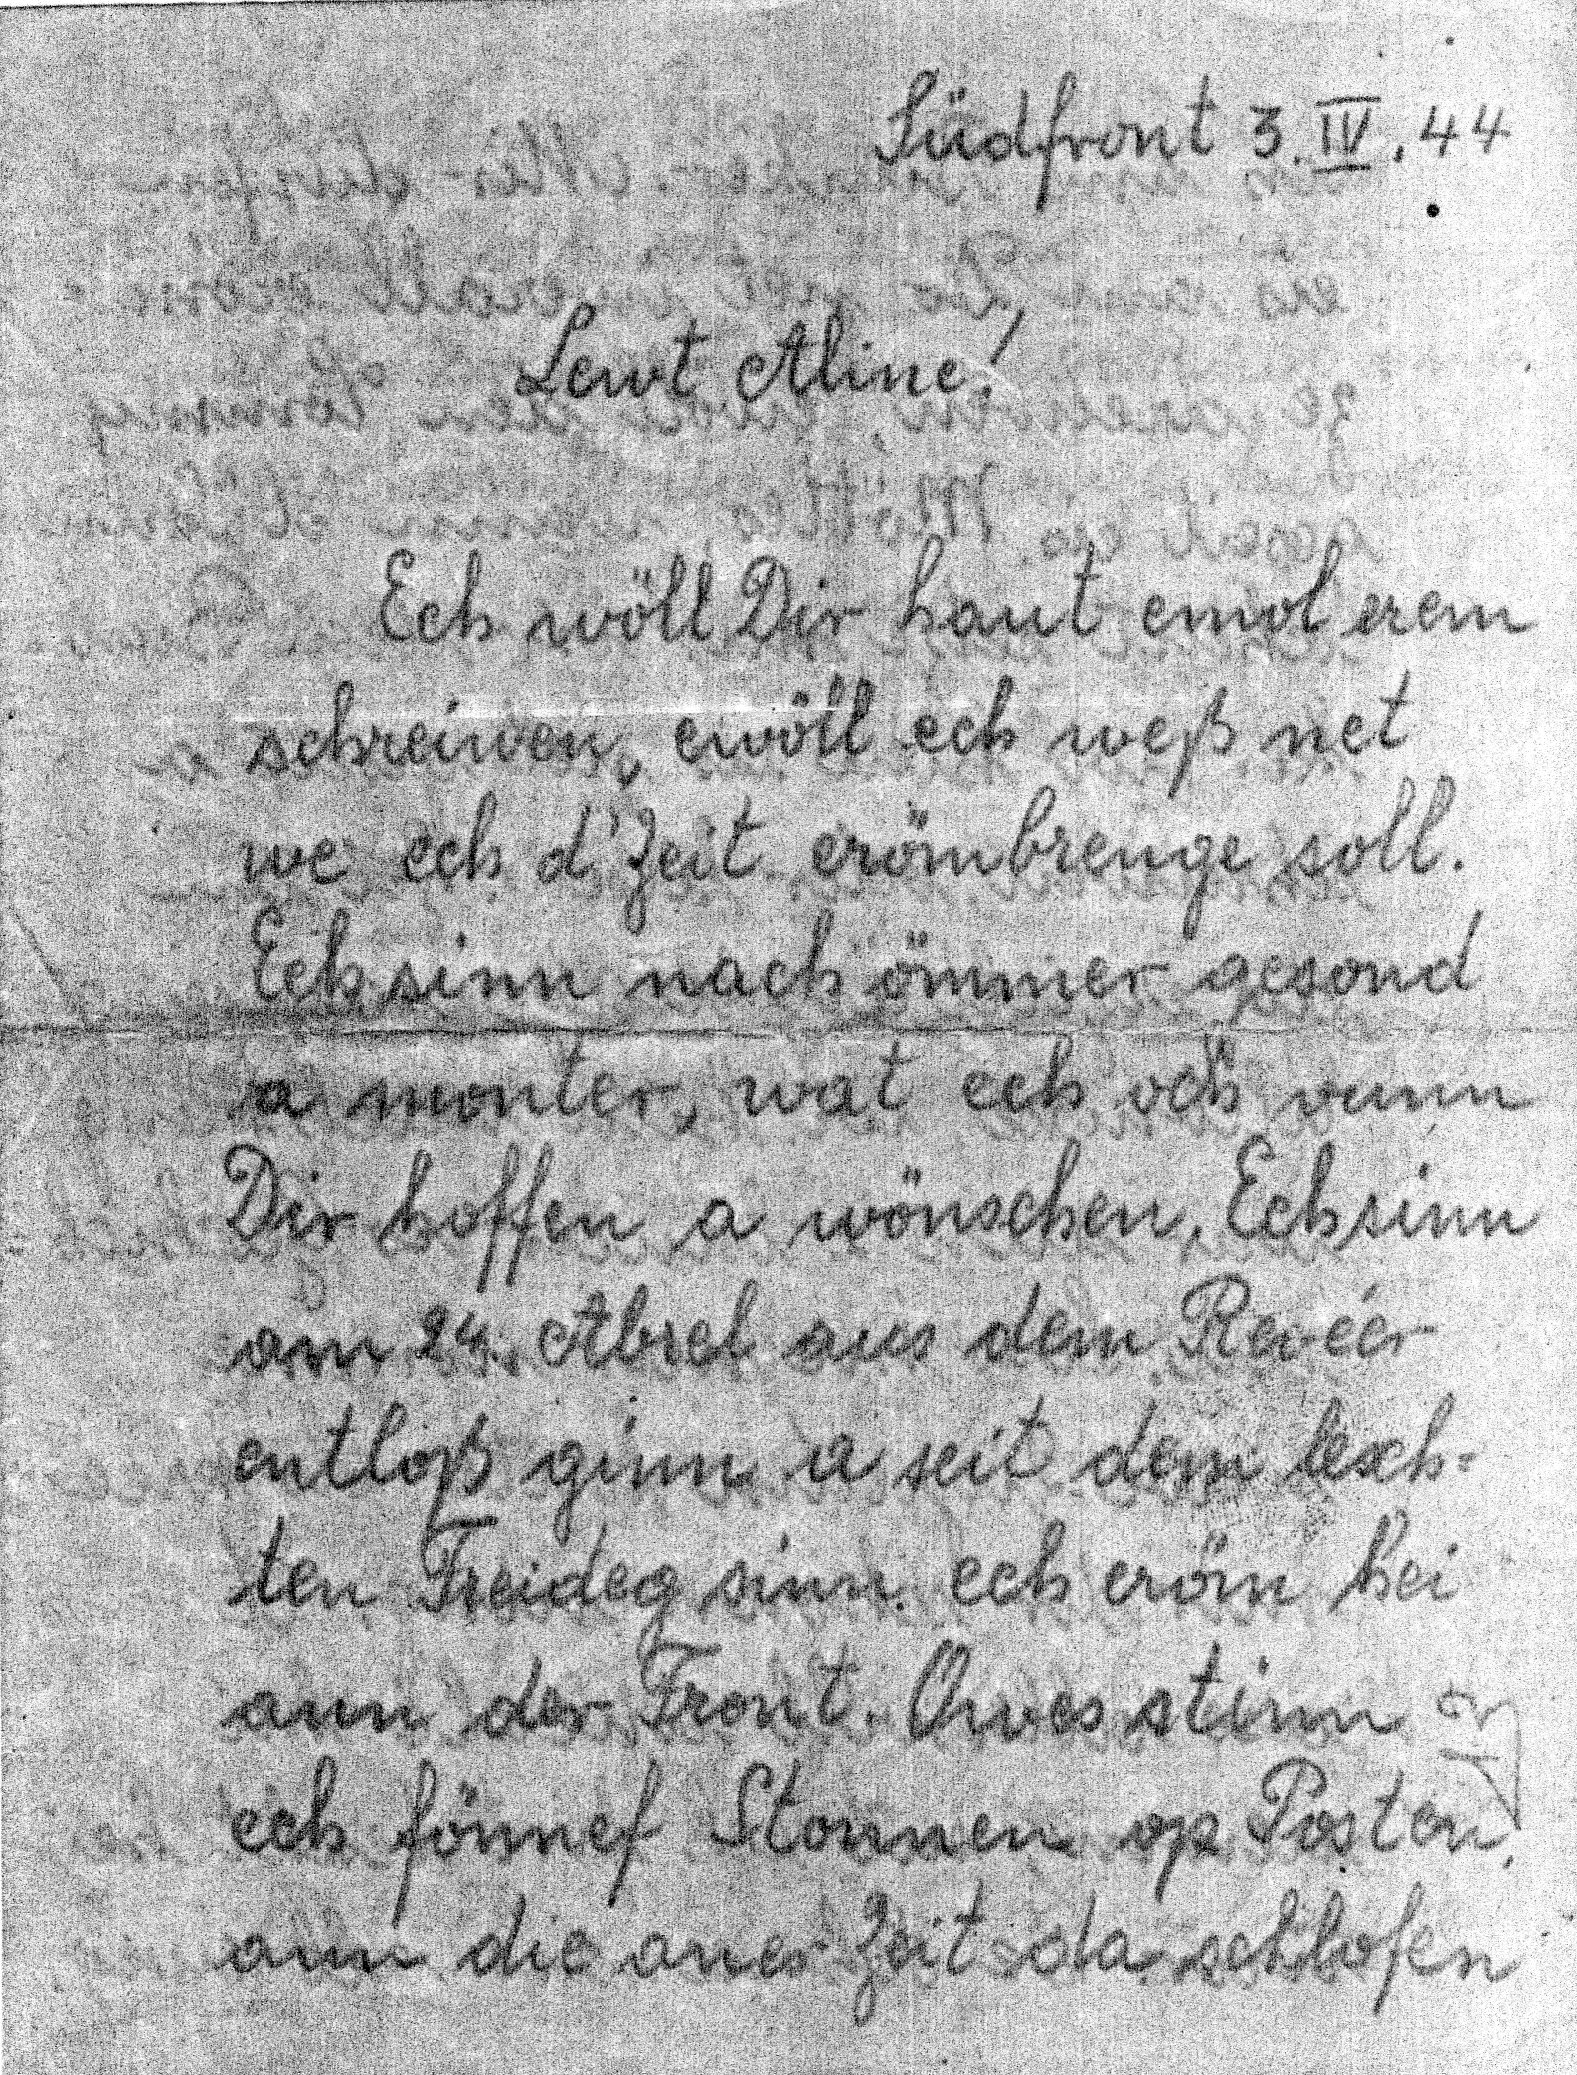 Südfront 3.IV.44
Lewt Aline!
Ech wöll Dir haut emol erem
schreiwen, ewöll ech weß net
we ech d'Zeit erömbrenge soll.
Ech sinn nach ömmer gesond
a monter, wat ech och vunn
Dir hoffen a wönschen. Ech sinn
am 24. Abrel aus dem Revéer
entloß ginn a seit dem lesch=
ten Freideg sinn ech eröm hei
ann der Front. Owes stinn
ech fönnef Stonnen op Posten,
ann die aner Zeit da schlofen